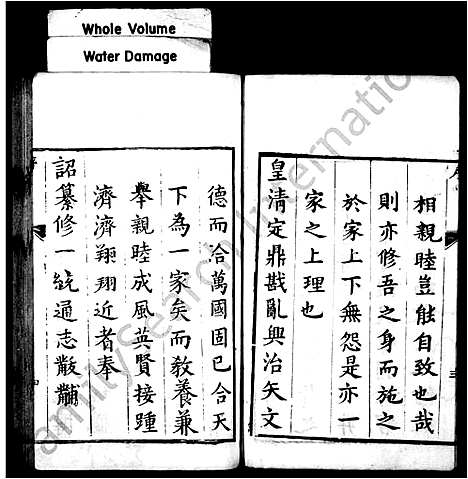 Whole Volume
Water Damage
相親睦豈能自致也哉
則亦修吾之身而施之
於家上下無怨是亦一
家之上理也
皇清定鼎戡亂興治矢文
德而洽萬國固已合天
下為一家矣而敎養兼
舉親睦成風英賢接踵
濟濟翔翔近者奉
詔纂修一統通志黻黼
FamilySearch International